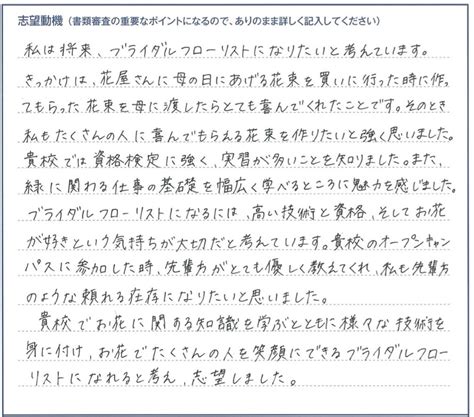 志望動機（書類審査の重要なポイントになるので、ありのまま詳しく記入してください）
私は将来、ブライダルフローリストになりたいと考えています。
きっかけは、花屋さんに母の日にあげる花束を買いに行った時に作っ
てもらった花束を母に渡したらとても喜んでくれたことです。そのとき
私もたくさんの人に喜んでもらえる花束を作りたいと強く思いました。
貴校では資格検定に強く、実習が多いことを知りました。また、
緑に関わる仕事の基礎を幅広く学べるところに魅力を感じました。
ブライダルフローリストになるには、高い技術と資格、そしてお花
が好きという気持ちが大切だと考えています。貴校のオープンキャン
パスに参加した時、先輩方がとても優しく教えてくれ、私も先輩方
のような頼れる存在になりたいと思いました。
貴校でお花に関する知識を学ぶとともに様々な技術を
身に付け、お花でたくさんの人を笑顔にできるブライダルフロー
リストになれると考え、志望しました。